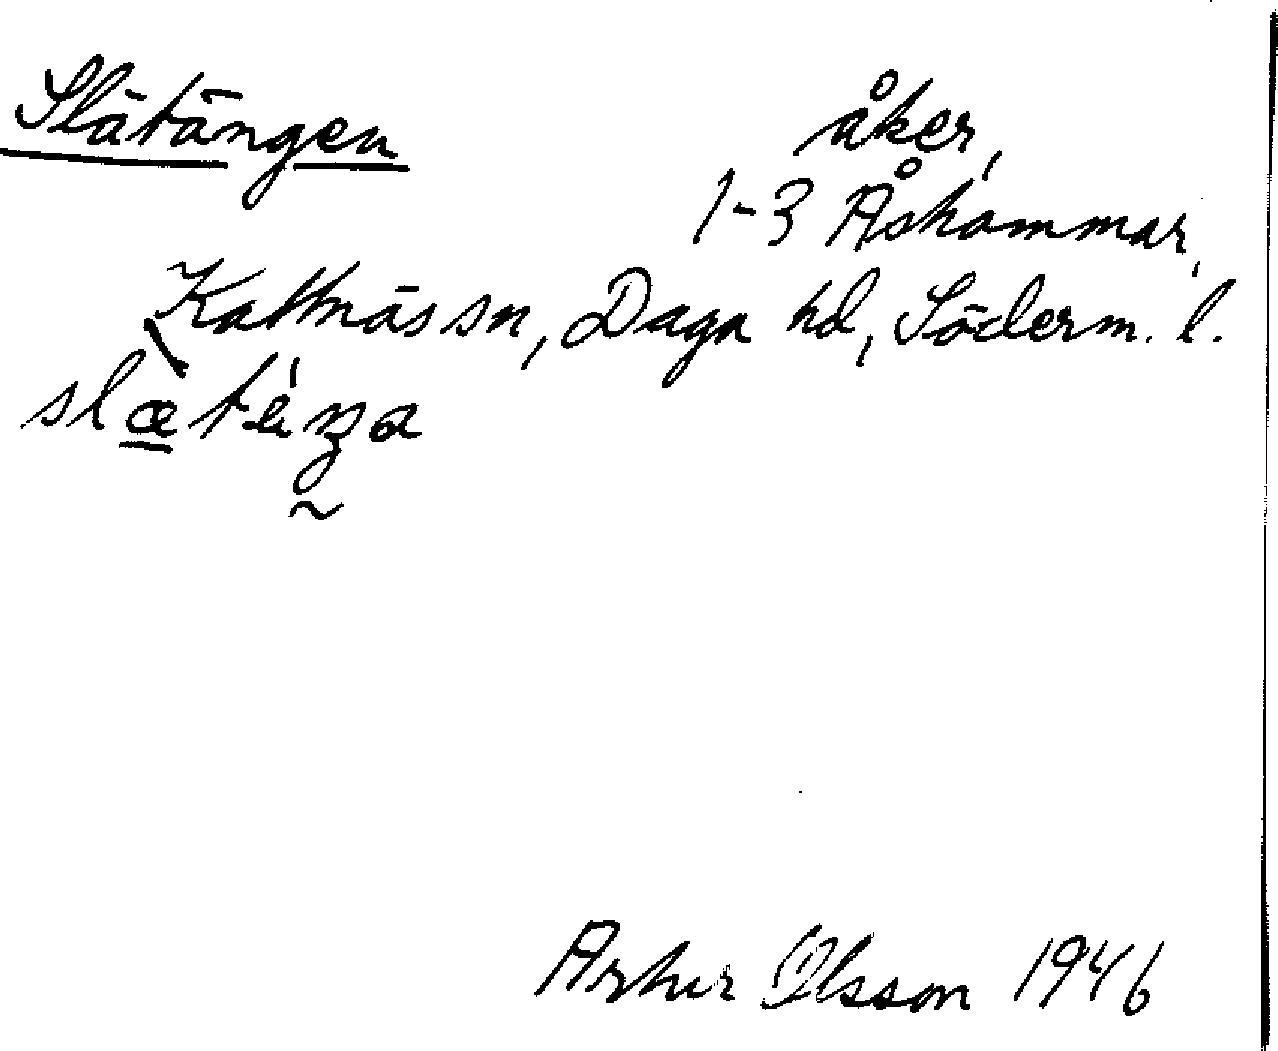 Slätängen
åker,
1-3 Åshammar,
Kattnäs sn, Daga hd, Söderm. l.
slæ̀téŋa
Artur Olsson 1946